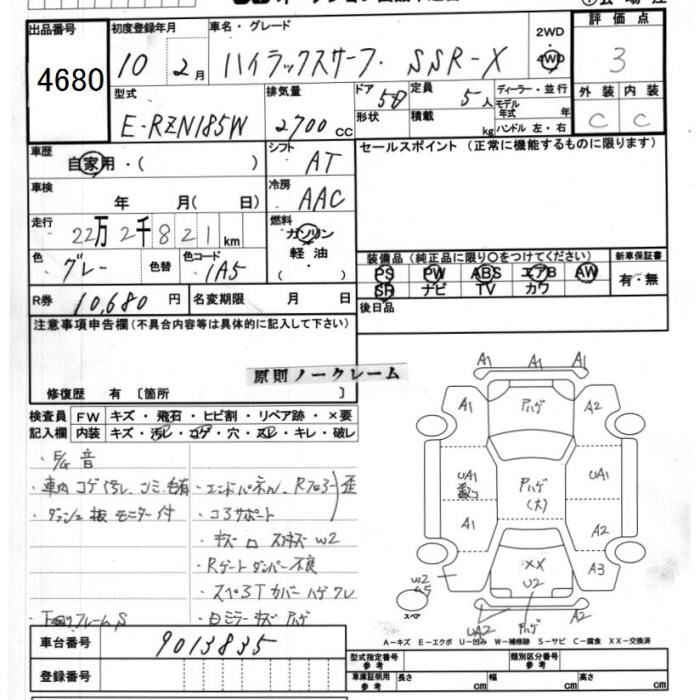 出品番号 4680
初度登録年月 10年 2月
車名・グレード ハイラックスサーフ SSR-X
2WD 4WD
評価点 3
外装 内装
C C
型式 E-RZN185W
排気量 2700 CC
ドア形状 5D
定員 5人
積載 kg
ディーラー・並行
モデル年式 年
ハンドル 左・右
車歴 自家用・( )
シフト AT
セールスポイント (正常に機能するものに限ります)
車検 年 月( 日)
冷房 AAC
走行 22万2千821km
燃料 ガソリン 軽油
色 グレー 色替 色コード 1A5
装備品 (純正品に限り○をつけてください)
新車保証書 有・無
PS PW ABS エアB AW
SR ナビ TV カワ
R券 10,680円 名変期限 月 日
後日品
注意事項申告欄(不具合内容等は具体的に記入して下さい)
原則ノークレーム
修復歴 有 [箇所 ]
検査員 FW キズ・飛石・ヒビ割・リペア跡・×要
記入欄 内装 キズ・汚レ・コゲ・穴・スレ・キレ・破レ
・E/G 音
・車内 コゲ 汚レ
・エンドパネル、Rフロアー 歪
・ダッシュ板 モニター付
・コアサポート
・Rゲートダンパー不良
下回りフレームS
A1 A1 A1
A1 ハゲ A2
UA1 ハゲ(大) UA1
A1 A2
XX A3
W2 U2
スペア UA2 ハゲ A2
A=キズ E=エクボ U=凹み W=補修跡 S=サビ C=腐食 XX=交換済
車台番号 9013835
登録番号
型式指定番号 参考 類別区分番号 参考
車庫証明用 参考 長さ cm 幅 cm 高さ cm